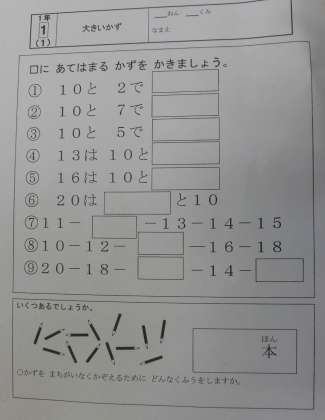 1年
1
(1)
大きいかず
___ねん ___くみ
なまえ
□に あてはまる かずを かきましょう。
① 10と 2で
② 10と 7で
③ 10と 5で
④ 13は 10と
⑤ 16は 10と
⑥ 20は と10
⑦11- -13-14-15
⑧10-12- -16-18
⑨20-18- -14-
いくつあるでしょうか。
ほん
本
○かずを まちがいなくかぞえるために どんなくふうをしますか。